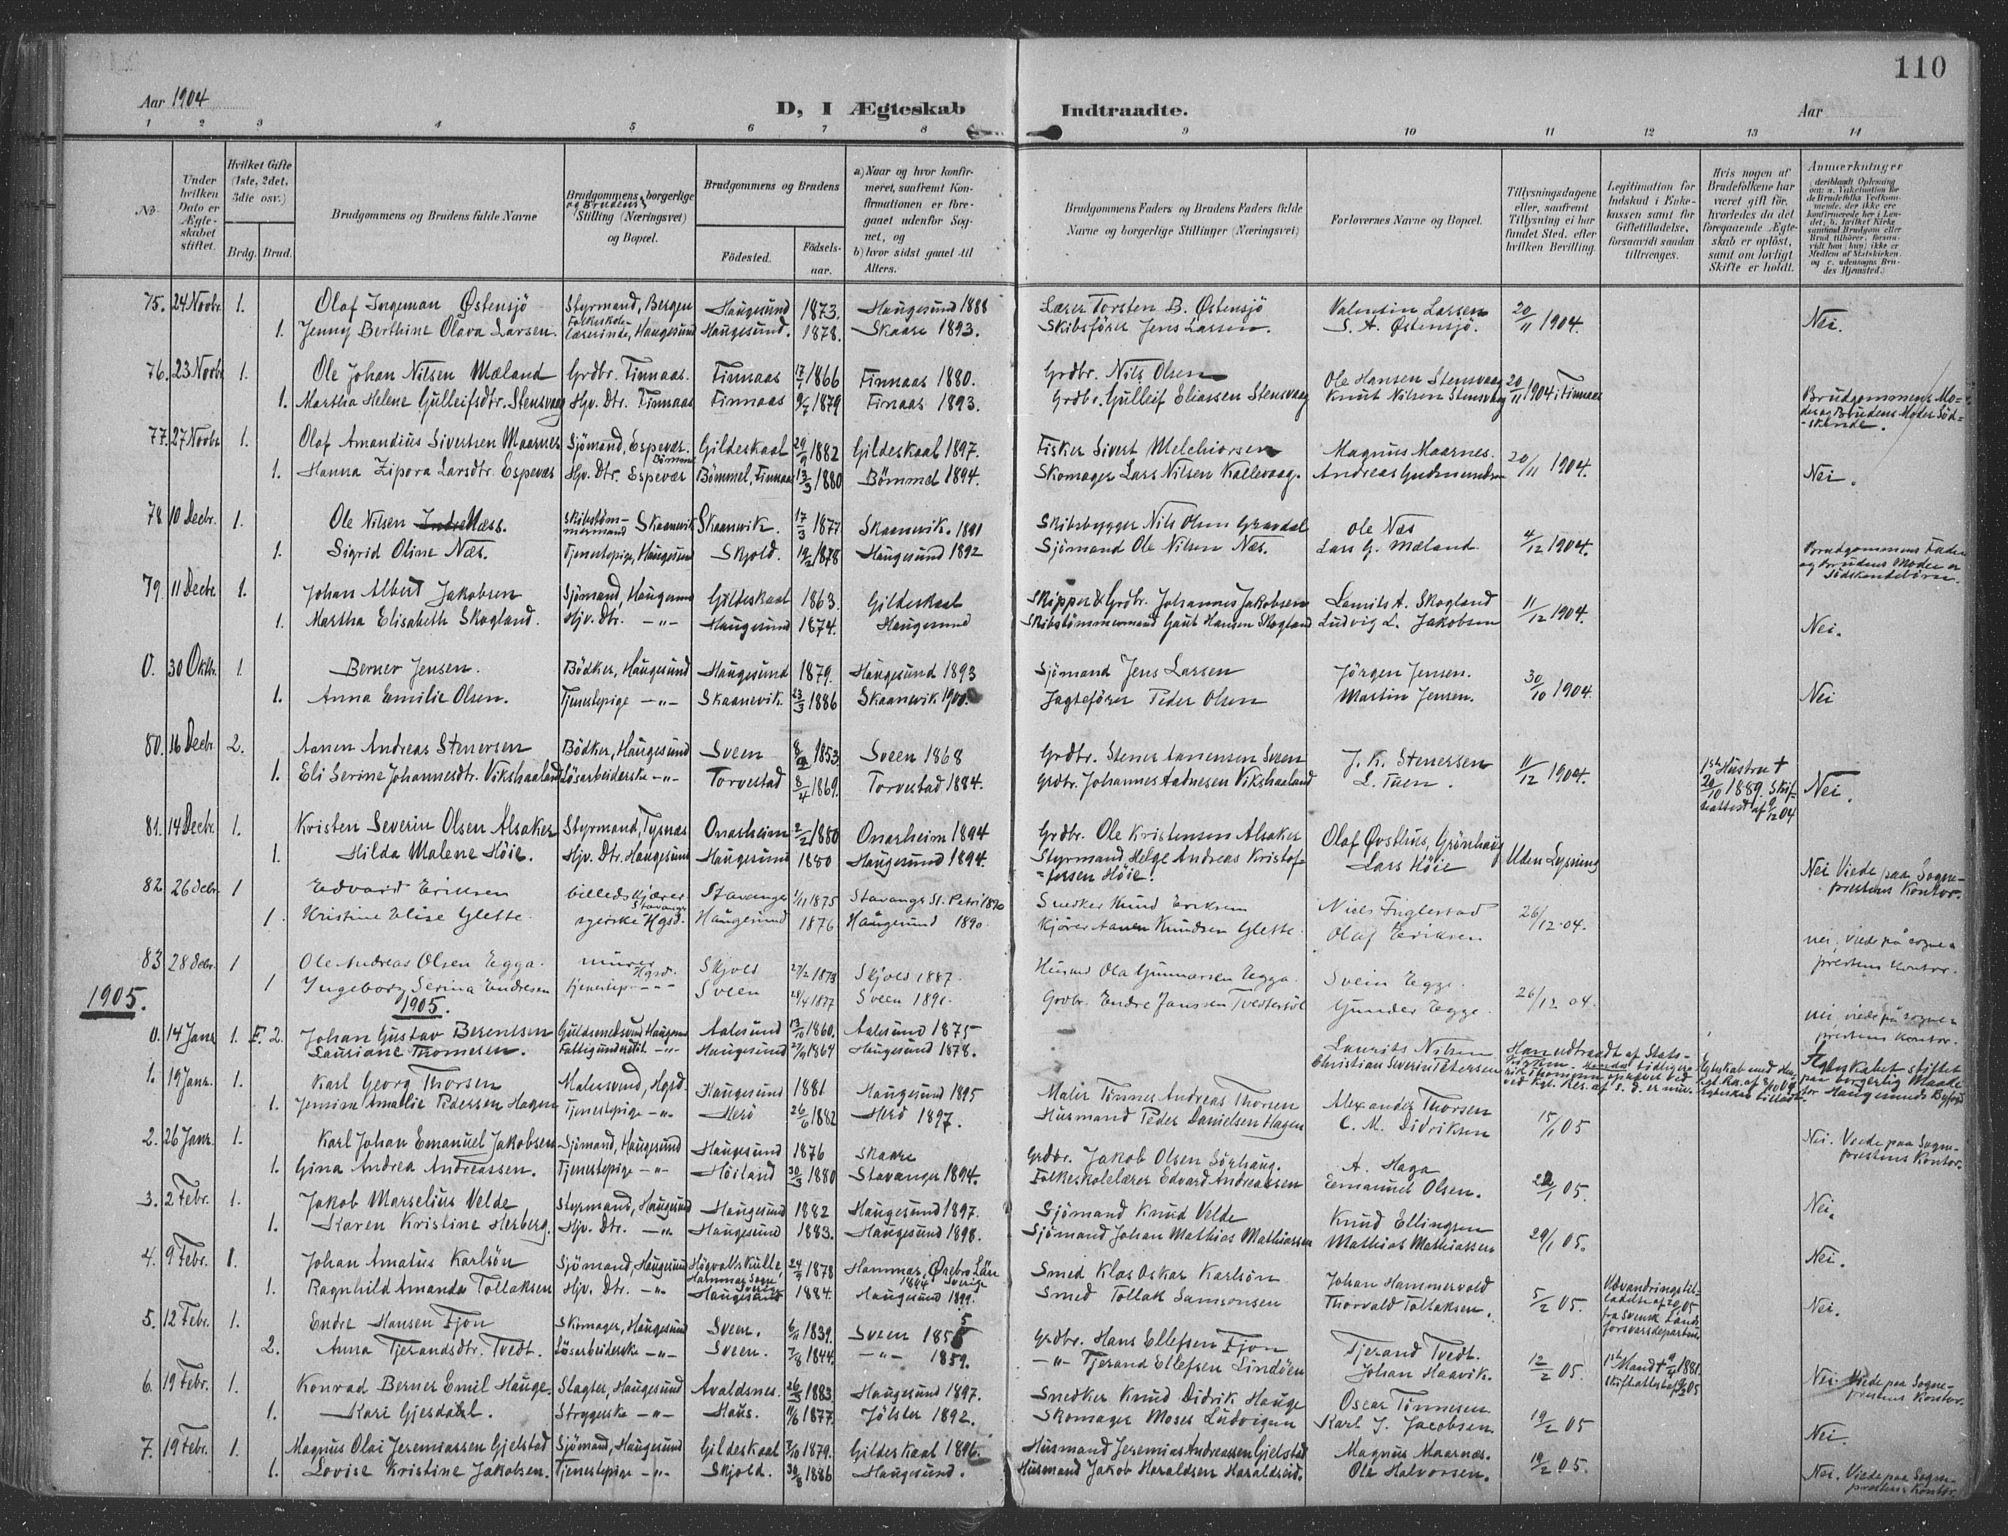 110
Aar 1904
D, I Ægteskab Indtraadte.
Aar
1 2 3 4 5 6 7 8 9 10 11 12 13 14
No.
Under hvilken Dato er Ægteskabet stiftet.
Hvilket Gifte (1ste, 2det, 3die osv.)
Brdg. Brud.
Brudgommens og Brudens fulde Navne
Brudgommens og Brudens borgerlige Stilling (Næringsvei) og Bopæl.
Brudgommens og Brudens
Fødested. Fødselsaar.
a) Naar og hvor konfirmeret, saafremt Konfirmationen er foregaaet udenfor Sognet, og
b) hvor sidst gaaet til Alters.
Brudgommens Faders og Brudens Faders fulde Navne og borgerlige Stillinger (Næringsvei)
Forlovernes Navne og Bopæl.
Tillysningsdagene eller, saafremt Tillysning ei har fundet Sted, efter hvilken Bevilling.
Legitimation for Indskud i Enkekassen samt for Giftetilladelse, forsaavidt saadan tiltrænges.
Hvis nogen af Brudefolkene har været gift før, hvorledes da det foregaaende Ægteskab er opløst, samt om lovligt Skifte er holdt.
Anmerkninger
75. 24 Novbr. 1. Olaf Ingeman Østensjö Styrmand, Bergen Haugesund 1873. Haugesund 1888 Lærer Torsten B. Østensjö Valentin Larsen 20/11 1904. Nei.
1. Jenny Berthine Olava Larsen. Folkeskolelærerinde, Haugesund Haugesund. 1878. Skaare 1893. Skibsförer Jens Larsen. S. A. Østensjö.
76. 23 Novbr. 1. Ole Johan Nilsen Mæland Grdbr. Finnaas. Finnaas 17/1 1866 Finnaas 1880. Grdbr. Nils Olsen Ole Hansen Stensvaag 20/11 1904 i Finnaas Brudgommens Moder og Brudens Moder Södskende.
1. Martha Helene Gulleifsdtr. Stensvaag Hjv. Dtr. Finnaas Finnaas 9/7 1879 Finaas 1893. Grdbr. Gulleif Eliassen Stensvaag Knut Nilsen Stensvaag
77. 27 Novbr. 1. Olaf Amandius Sivertsen Maarnes Sjömand, Espevær. Gildeskaal 29/9 1882 Gildeskaal 1897. Fisker Sivert Melchiorsen Magnus Maarnes. 20/11 1904. Nei.
1. Hanna Zipora Larsdtr. Espevær Hjv. Dtr. Espevær Bömmel Bömmel, Finnaas 13/3 1880 Bömmel 1894. Skomager Lars Nilsen Kallevaag. Andreas Gudmundsen
78. 10 Decbr. 1. Ole Nilsen Næss. Skibstömmermand Skaanevik Skaanevik. 17/3 1877 Skaanevik. 1891 Skibsbygger Nils Olsen Gravdal Ole Næs 4/12 1904. Brudgommens Fader og Brudens Moder er Södskendebörn.
1. Sigrid Oline Næs. Tjenestepige, Haugesund Skjold. 19/2 1878 Haugesund 1892 Sjömand Ole Nilsen Næs. Lars G. Mæland
79. 11 Decbr. 1. Johan Albert Jakobsen Sjömand, Haugesund Gildeskaal 1863. Gildeskaal Skipper & Grdbr. Johannes Jakobsen Laurits A. Skogland 11/12 1904. Nei.
1. Martha Elisabeth Skogland. Hjv. Dtr. -"- Haugesund 1874. Haugesund Skibstömmermand Gaut Hansen Skogland Ludvig L. Jakobsen
0. 30 Oktbr. 1. Berner Jensen. Bödker, Haugesund Haugesund 1879. Haugesund 1893 Sjömand Jens Larsen Jörgen Jensen. 30/10 1904. Nei
1. Anna Emilie Olsen. Tjenestepige -"- Skaanevik 23/3 1886 Skaanevik 1900. Jagteförer Peder Olsen Martin Jensen.
80. 16 Decbr. 2. Aanen Andreas Stenersen Bödker, Haugesund Sveen 1853. Sveen 1868 Grdbr. Stener Aanensen Sveen J. K. Stenersen 11/12 1904. 1ste Hustru † 20/10 1889. Skifteattest af 9/12 04 Nei.
1. Eli Serine Johannesdtr. Vikshaaland Lösarbeiderske -"- Torvestad 8/4 1869. Torvestad 1884. Grdbr. Johannes Aadnesen Vikshaaland L. Tuen.
81. 14 Decbr. 1. Kristen Severin Olsen Alsaker Styrmand, Tysnæs Onarheim 1880 Onarheim 1894 Grdbr. Ole Kristensen Alsaker Olaf Øvsthus, Grönhaug Uden Lysning Nei Viede paa Sogneprestens Kontor.
1. Hilda Malene Höie. Hjv. Dtr. Haugesund Haugesund 1880 Haugesund 1894. Styrmand Helge Andreas Kristoffersen Höie. Lars Höie
82. 26 Debr. 1 Edvard Eriksen billedskjærer Stavanger Stavanger 1/11 1875 Stavanger St. Petri 1890 Snedker Knud Eriksen Niels Fuglestad 26/12.04. nei, viede på sogneprestens kontor.
1. Kristine Elise Glette. syerske Hgsd. Haugesund 1876 Haugesund 1890. Kjörer Aanen Knudsen Glette. Olaf Eriksen
83. 28 Debr. 1 Ole Andreas Olsen Egga. murer Hgsd. Skjold 27/2 1873 Skjold 1887. Husmd Ola Gunnarsen Egga Svein Egge. 26/12 04. nei, viede på sogneprestens kontor.
1 Ingeborg Serina Endresen tjenestep. -"- Sveen 28/4 1877 Sveen 1891. Grdbr. Endre Janssen Tvedtersöl Gunder Egge.
1905. 1905.
0. 14 Janr. 1. F. 2. Johan Gustav Berentsen Guldsmedsvend Haugesund Aalesund 13/10 1860. Aalesund 1875 Laurits Nilsen Han udtraadt af Statskirken. Ægteskabet stiftet paa borgerlig Maade for Haugesunds Byfoged
Lausiane Thomesen. -"- Haugesund 27/9 1864 Haugesund 1878. Christian Severin Petersen
1. 19 Janr. 1. Karl Georg Thorsen Malersvend, Hgsd. Haugesund 1881 Haugesund 1895 Maler Tinner Andreas Thorsen Alexander Thorsen 15/1 05 Nei. Viede paa Sogneprestens Kontor.
1. Jensine Amalie Pedersen Hagen Tjenestepige -"- Herö 26/6 1882 Herö 1897. Husmand Peder Danielsen Hagen C. M. Didriksen
2. 26 Janr. 1. Karl Johan Emanuel Jakobsen Sjömand, Haugesund Haugesund 1876 Skaare Grdbr. Jakob Olsen Sörhaug. A. Haga 22/1 05. Nei.
1. Gina Andrea Andreassen. Tjenestepige -"- Höiland 30/3 1880 Stavanger 1894. Folkeskolelærer Edvard Andreassen Emanuel Olsen.
3. 2 Febr. 1. Jakob Marselius Velde Styrmand, Haugesund Haugesund 1882 Haugesund 1897. Sjömand Knud Velde Knud Ellingsen 29/1 05. Nei.
1. Karen Kristine Herberg. Hjv. Dtr. -"- Haugesund 1883. Haugesund 1898. Sjömand Johan Mathias Mathiassen Mathias Mathiassen
4. 9 Febr. 1. Johan Amatus Karlsön Sjömand, Haugesund Högvaltskulle, Hammar Sogn Sverige 24/9 1878 Hammar, Örebro Län 1894 Sverige Smed Klas Oskar Karlsön Johan Hammervold 5/2 05. Udvandringstilladelse af 20/1 05 fra Svensk Landsforsvarsdepartem. Nei.
1. Ragnhild Amanda Tollaksen Hjv. Dtr. -"- Haugesund 1884. Haugesund 1899. Smed Tollak Samsonsen Thorvald Tollaksen.
5. 12 Febr. 1. Endre Hansen Fjon Skomager, Haugesund Sveen. 1839. Sveen 1855 Grdbr. Hans Ellefsen Fjon Tjerand Tvedt. 12/2 05. 1ste Mand † 1881. Skifteattest 05 Nei. Viede paa Sogneprestens Kontor.
2. Anna Tjerandsdtr. Tvedt. Lösarbeiderske -"- Sveen. 7/8 1844. -"- 1859. -"- Tjerand Ellefsen Lindöen Johan Haavik.
6. 19 Febr. 1. Konrad Berner Emil Hauge. Slagter, Haugesund Avaldsnes. 1883 Haugesund 1897. Snedker Knud Didrik Hauge Oscar Tinnesen 19/2 05 Nei.
1. Kari Gjesdahl. Strygerske -"- Haus. 11/6 1877. Jölster 1892. Skomager Moses Ludvigsen Karl J. Jacobsen
7. 19 Febr. 1. Magnus Olai Jeremiassen Gjelstad Sjömand, Haugesund Gildeskaal 1879. Gildeskaal 1896. Husmand Jeremias Andreassen Gjelstad Magnus Maarnæs. 19/2 05. Nei. Viede paa Sogneprestens Kontor.
1. Lovise Kristine Jakobsen. Tjenestepige -"- Skjold. 30/8 1886 Haugesund. Husmand Jakob Haraldsen Haraldseid. Ole Halvorsen.